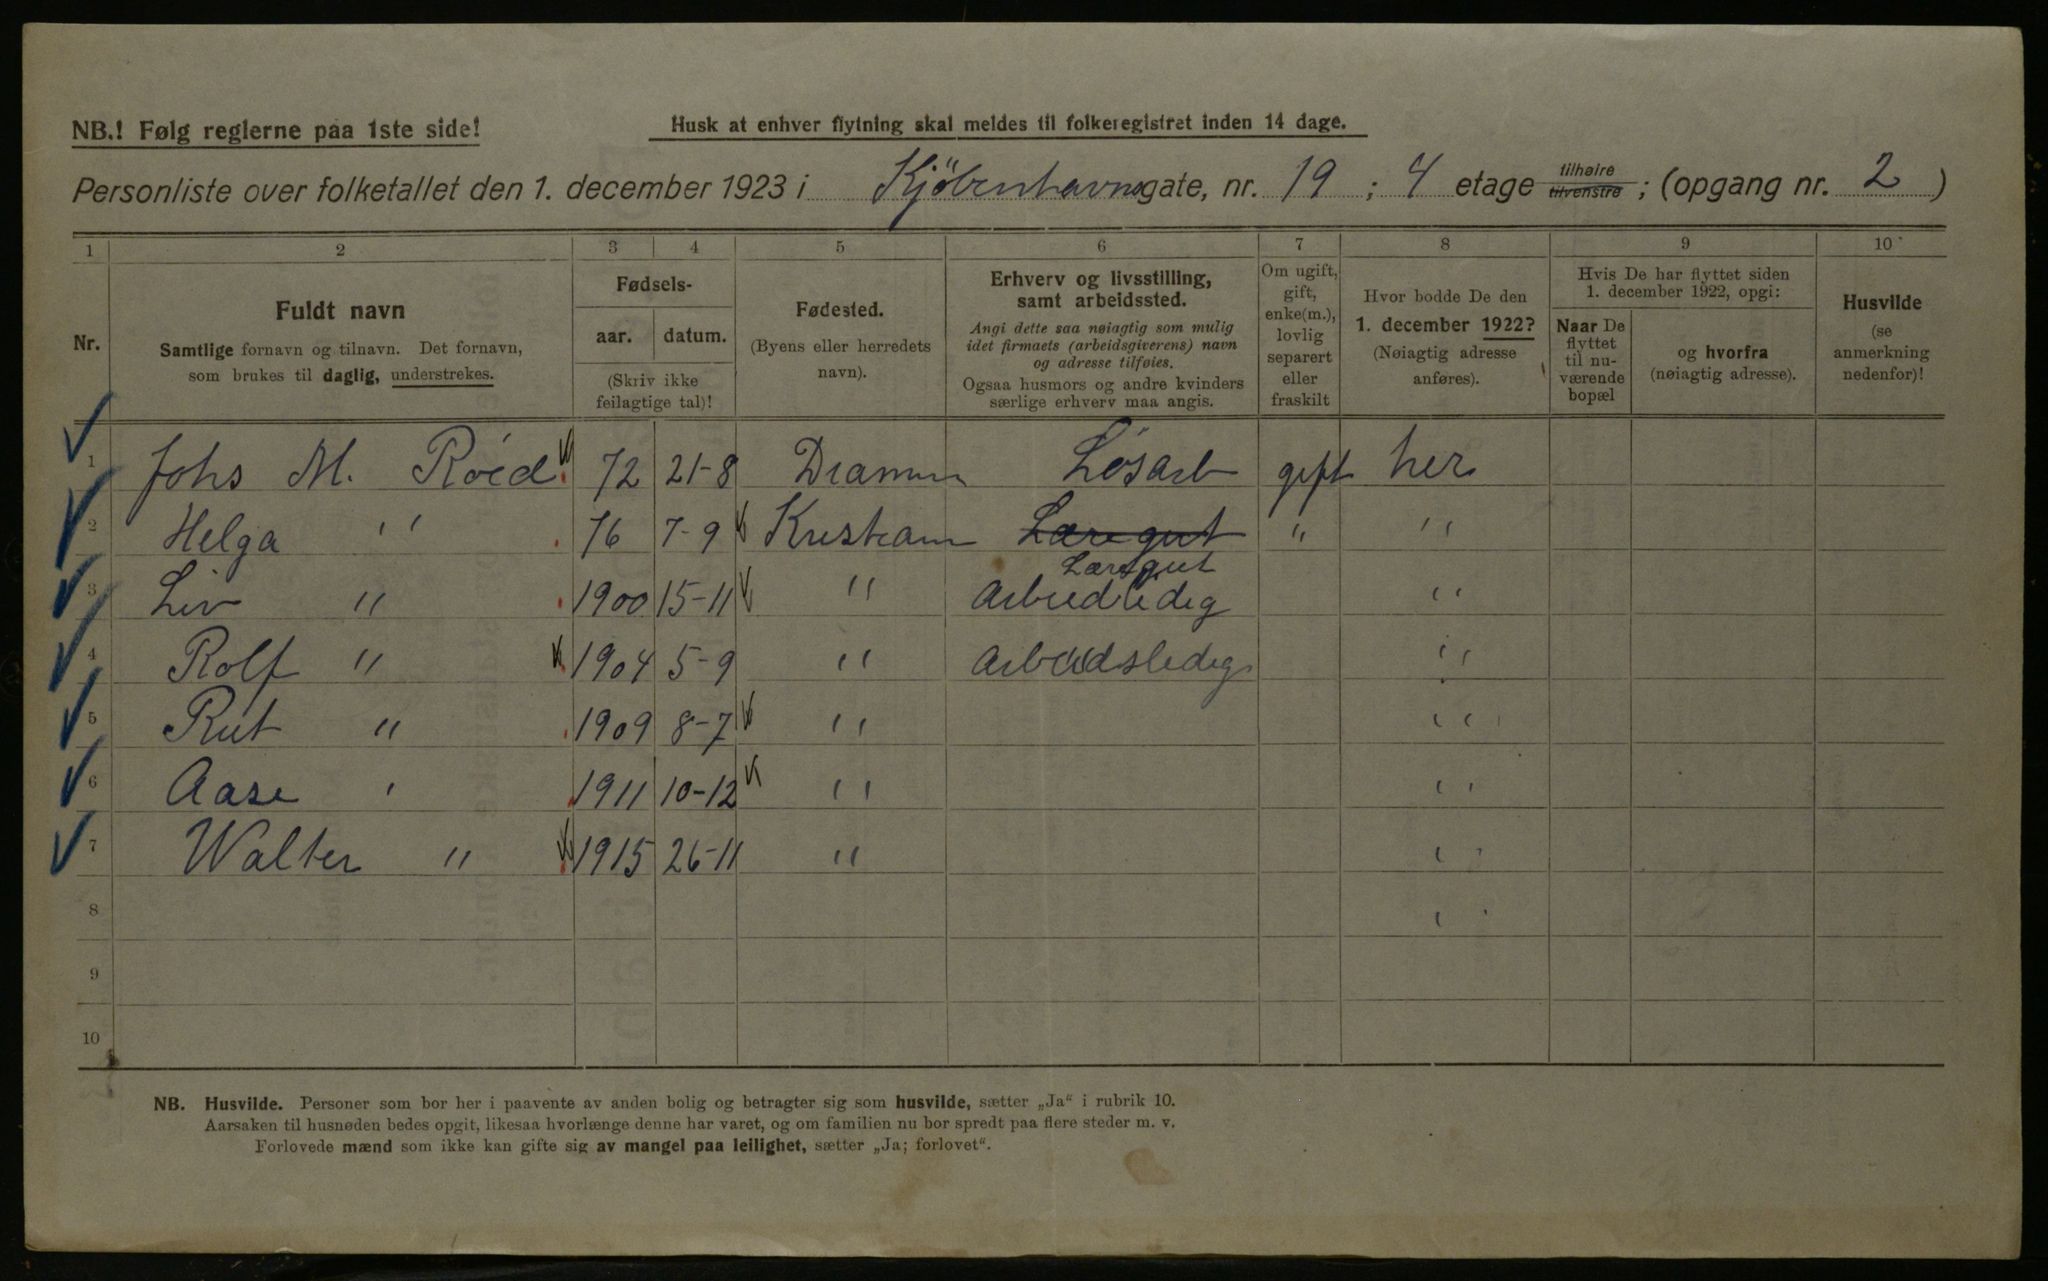 NB.! Følg reglerne paa 1ste side!
Husk at enhver flytning skal meldes til folkeregistret inden 14 dage.
Personliste over folketallet den 1. december 1923 i Kjöbenhavnsgate, nr. 19 ; 4 etage tilhøire tilvenstre ; (opgang nr. 2 )
1 2 3 4 5 6 7 8 9 10
Nr.
Fuldt navn
Samtlige fornavn og tilnavn. Det fornavn,
som brukes til daglig, understrekes.
Fødsels-
aar. datum.
(Skriv ikke
feilagtige tal)!
Fødested.
(Byens eller herredets
navn).
Erhverv og livsstilling,
samt arbeidssted.
Angi dette saa nøiagtig som mulig
idet firmaets (arbeidsgiverens) navn
og adresse tilføies.
Ogsaa husmors og andre kvinders
særlige erhverv maa angis.
Om ugift,
gift,
enke(m.),
lovlig
separert
eller
fraskilt
Hvor bodde De den
1. december 1922?
(Nøiagtig adresse
anføres).
Hvis De har flyttet siden
1. december 1922, opgi:
Naar De
flyttet
til nu-
værende
bopæl
og hvorfra
(nøiagtig adresse).
Husvilde
(se
anmerkning
nedenfor)!
1 Johs M. Röed 72 21-8 Drammen Løsarb gift her
2 Helga " 76 7-9 Kristiam Læregut " "
Læregut
3 Liv " 1900 15-11 " Arbeidledig "
4 Rolf " 1904 5-9 " Arbeidsledig "
5 Rut " 1909 8-7 " "
6 Aase " 1911 10-12 " "
7 Walter " 1915 26-11 " "
8 "
9
10
NB. Husvilde. Personer som bor her i paavente av anden bolig og betragter sig som husvilde, sætter „Ja" i rubrik 10.
Aarsaken til husnøden bedes opgit, likesaa hvorlænge denne har varet, og om familien nu bor spredt paa flere steder m. v.
Forlovede mænd som ikke kan gifte sig av mangel paa leilighet, sætter „Ja; forlovet".